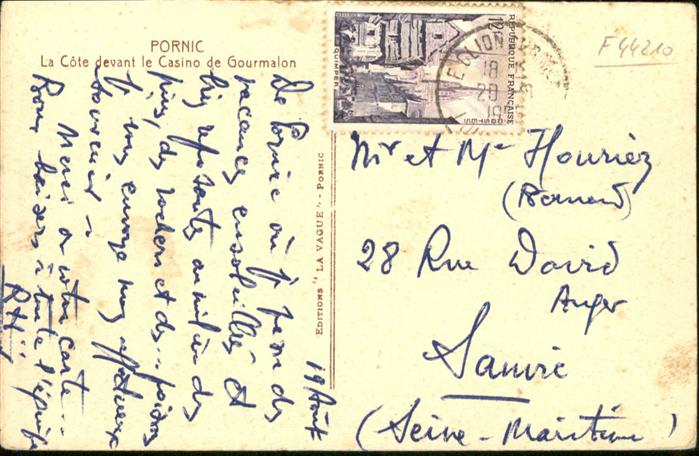 PORNIC
La Côte devant le Casino de Gourmalon
19 Août
De Pornic où je passe des
vacances ensoleillées et
bien reposantes au milieu des
pins, des rochers et des
je vous envoie mes affectueux
souvenirs.
Merci de votre carte...
Bons baisers à toute l'équipe
EDITIONS "LA VAGUE" - PORNIC
REPUBLIQUE FRANÇAISE
POSTES
QUIMPER
18
20
F44210
Mr et Me Houriez
(Bernard)
28 Rue David
Anger
Sanvic
(Seine-Maritime)